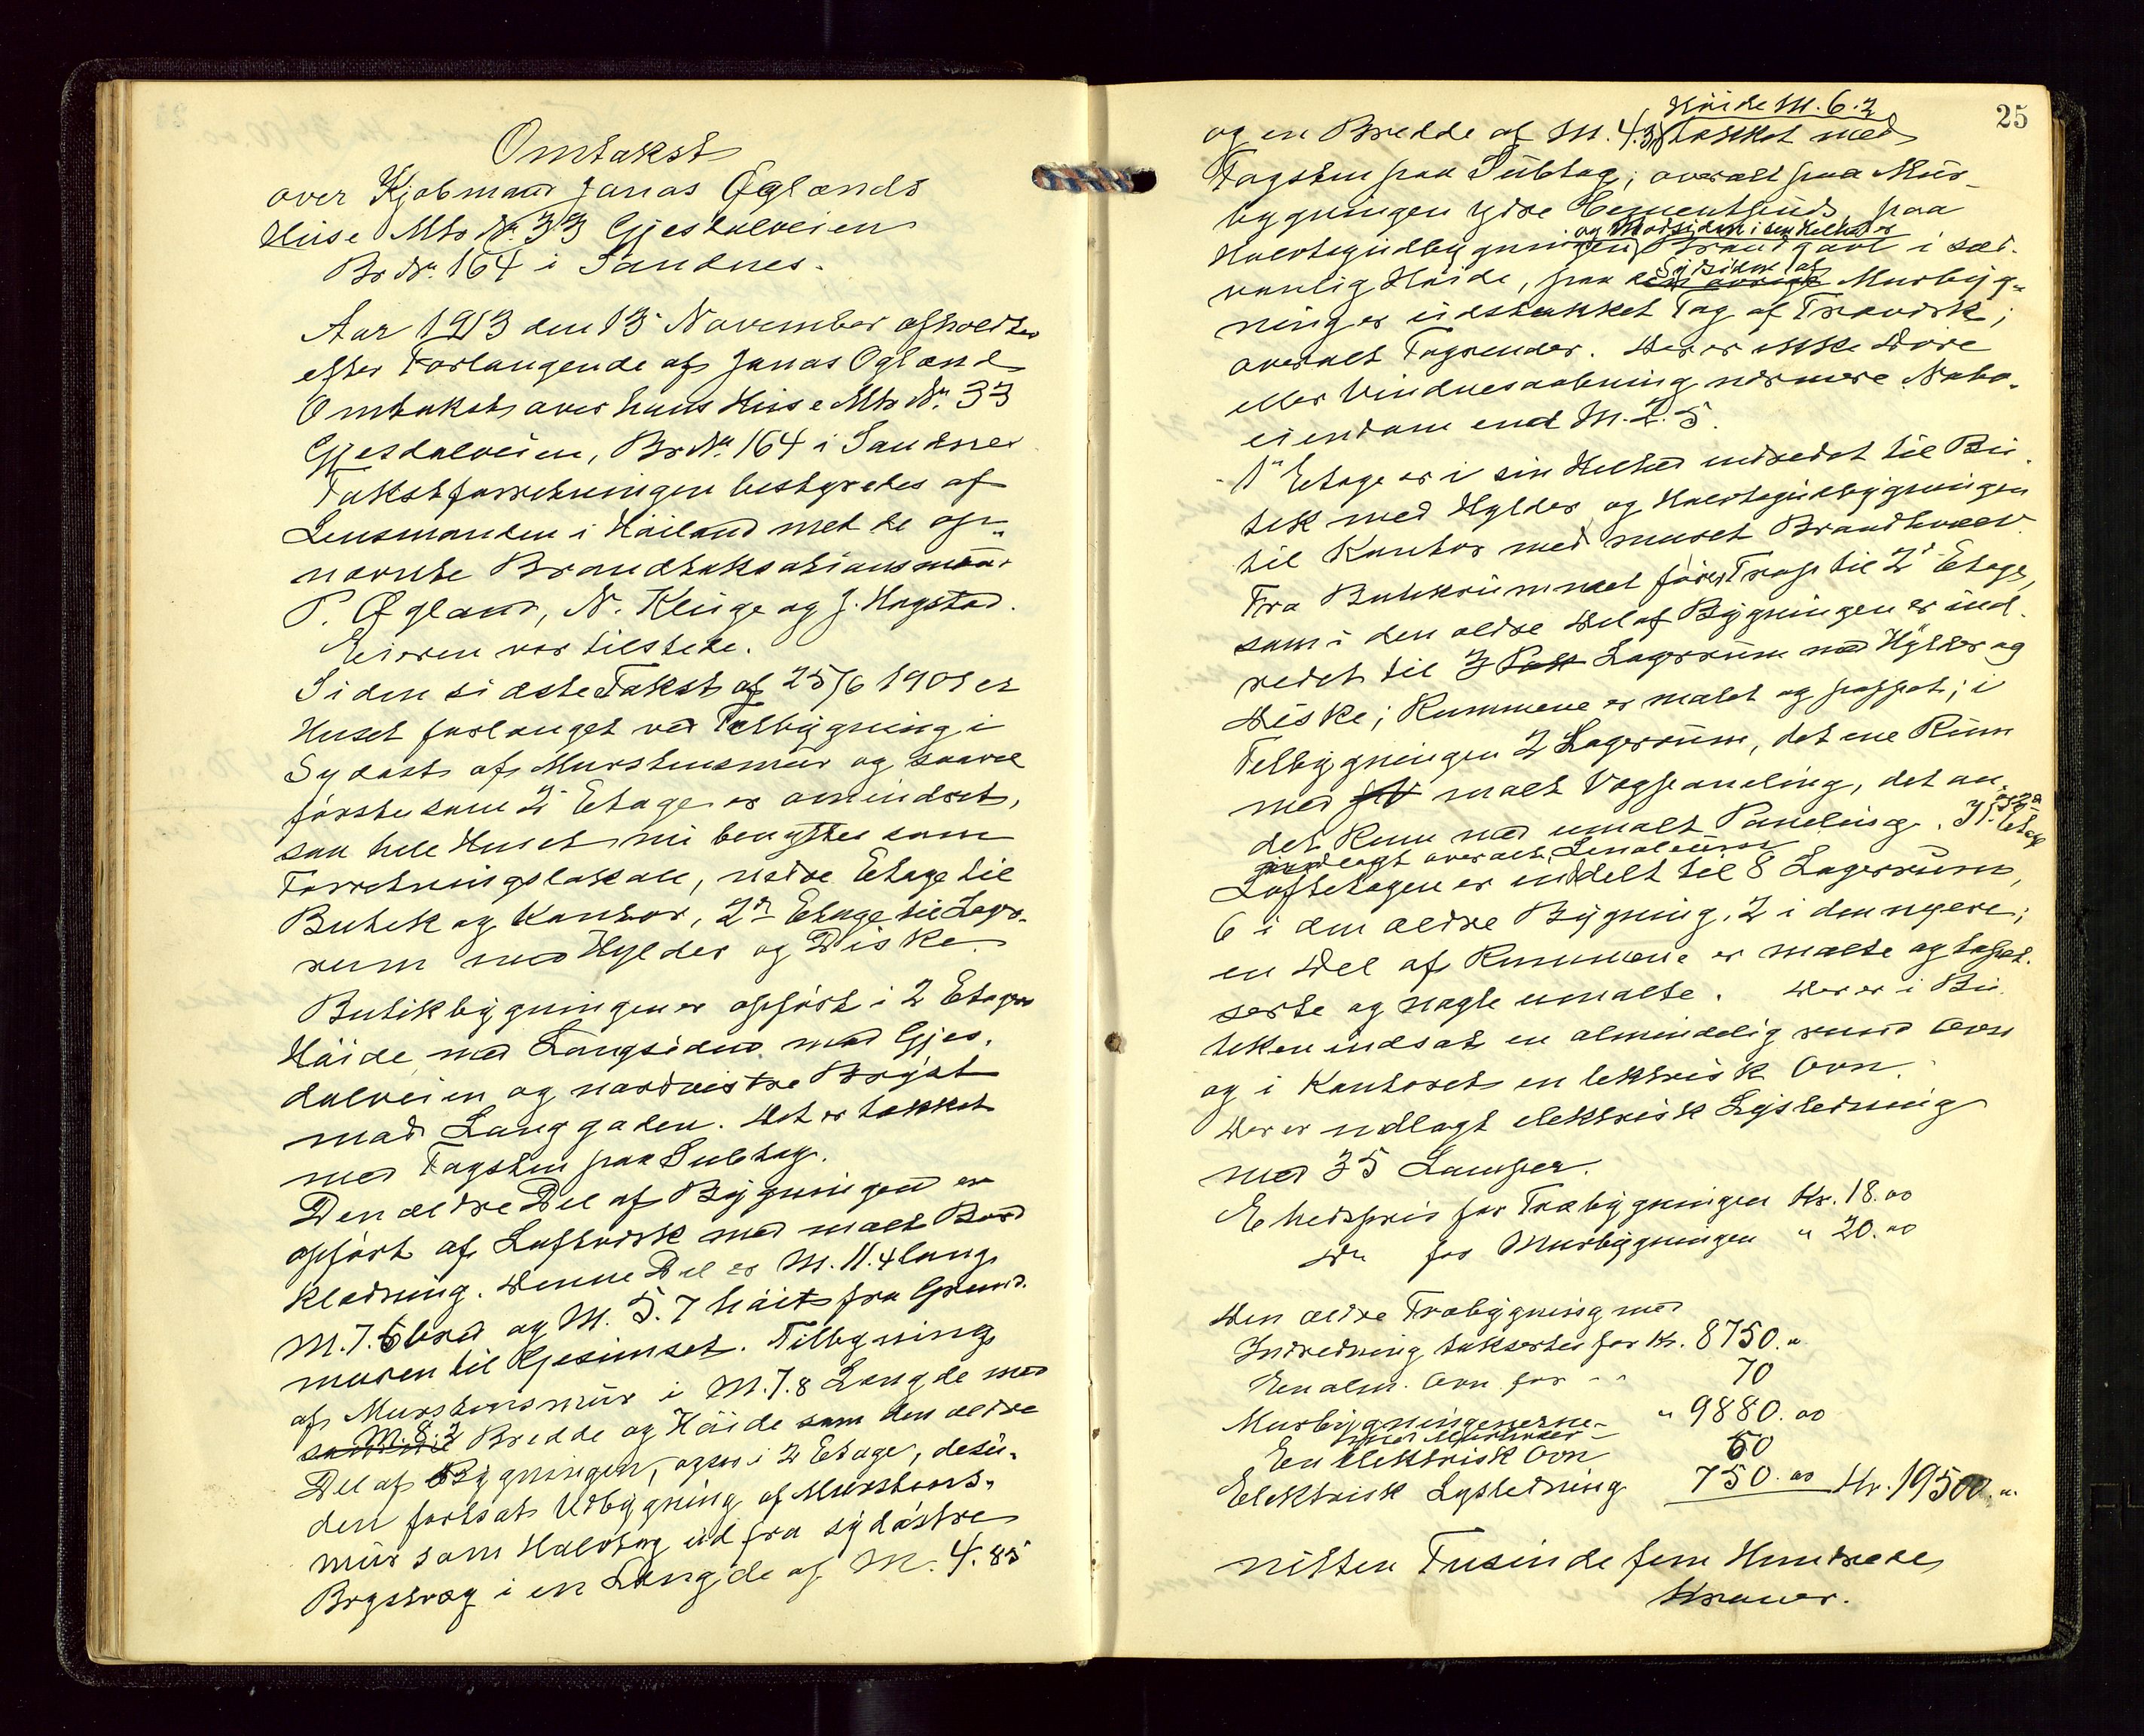 Omtakst
over Kjøbmand Jonas Øglænds
Huse Mtr Nr. 33 Gjesdalveien
Br Nr. 164 i Sandnes.
Aar 1913 den 13 November afholdtes
efter Forlangende af Jonas Øglænd
Omtakst over hans Huse Mtr Nr. 33
Gjesdalveien, Br Nr. 164 i Sandnes
Takstforretningen bestyredes af
Lensmanden i Høiland met de op-
nævnte Brandtaksationsmænd
P. Øgland, N. Kluge og J. Hogstad.
Eieren var tilstede.
Siden sidste Takst af 25/6 1909 er
Huset forlænget ved Tilbygning i
Sydøst af Murstensmur og saavel
første som 2den Etage er omindret,
saa hele Huset nu benyttes som
Forretningslokale, nedre Etage til
Butik og Kontor, 2den Etage til Lager-
rum med Hylder og Diske.
Butikbygningen er opført i 2 Etagers
Høide med Langsiden mod Gjes-
dalveien og nordvestre Bryst
mod Langgaden. Det er tækket
med Tagsten paa Subtag.
Den ældre Del af Bygningen er
opført af Loftvirk med malt Bord
klædning. Denne Del er M. 11.4 lang
M. 7.6 bred og M. 5.7 høit fra Grund-
muren til Gesimset. Tilbygning
af Murstensmur i M. 7.8 Længde med
M. 8.2 Bredde og Høide som den ældre
Del af Bygningen, ogsaa i 2 Etage, desu-
den fortsat Udbygning af Murstens-
mur som Halvtag ud fra sydøstre
Brystvæg i en Længde af M. 4.85
25
Høide M. 6.2
og en Bredde af M. 4.3, tækket med
Tagsten paa Subtag; overalt paa Mur-
bygningen ydre Cementpuds, paa
og Nordsiden i sin Helhed er
Halvtagudbygningen Brandgavl i sæd-
Sydsiden af
vanlig Høide, paa den øvrige Murbyg-
ning er udstukket Tag af Trævirk;
overalt Tagrender. Der er ikke Døre
eller Vinduesaabning nærmere Nabo-
eiendom end M. 2.5.
1ste Etage er i sin Helhed indredet til Bu-
tik med Hylder og Halvtagudbygningen
til Kontor med muret Brandhvælv.
Fra Butikrummet fører Trap til 2den Etage,
som i den ældre Del af Bygningen er ind-
redet til 3 Lagerrum med Hylder og
Diske; Rummene er malet og pappet; i
Tilbygningen 2 Lagerrum, det ene Rum
med malt Vægpaneling, det an-
det Rum med umalt Paneling. I 1ste og 2den Etage
er paalagt overalt Linoleum
Loftetagen er inddelt til 8 Lagerrum,
6 i den ældre Bygning, 2 i den nyere;
en Del af Rummene er malte og tapet-
serte og nogle umalte. Der er i Bu-
tiken indsat en almindelig rund Ovn
og i Kontoret en elektrisk Ovn.
Der er indlagt elektrisk Lysledning
med 35 Lamper.
Enhedspris for Træbygningen Kr. 18.00
Do for Murbygningen " 20.00
Den ældre Træbygning med
Indredning takseres for Kr. 8750."
En alm. Ovn for " " 70
Murbygningerne " 9880.00
En elektrisk Ovn 50
Elektrisk Lysledning 750.00 Kr. 19500."
nitten Tusinde fem Hundrede
Kroner.